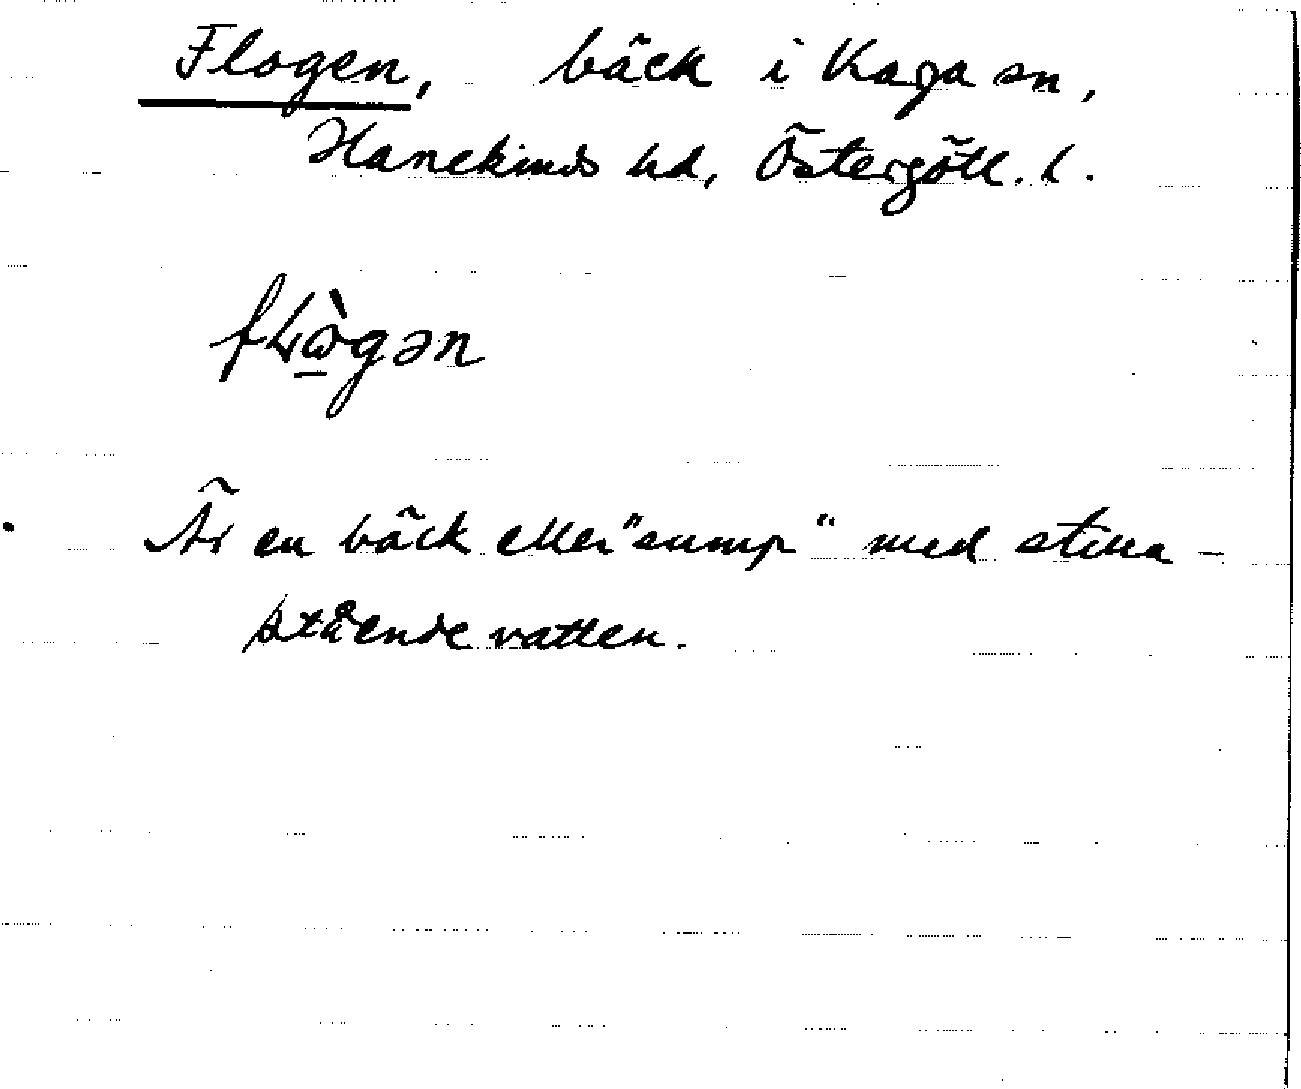 Flogen, bäck i Kaga sn,
Hanekinds hd, Östergötl. l.
fɫὼ̲gən
Är en bäck eller "sump" med stilla-
stående vatten.